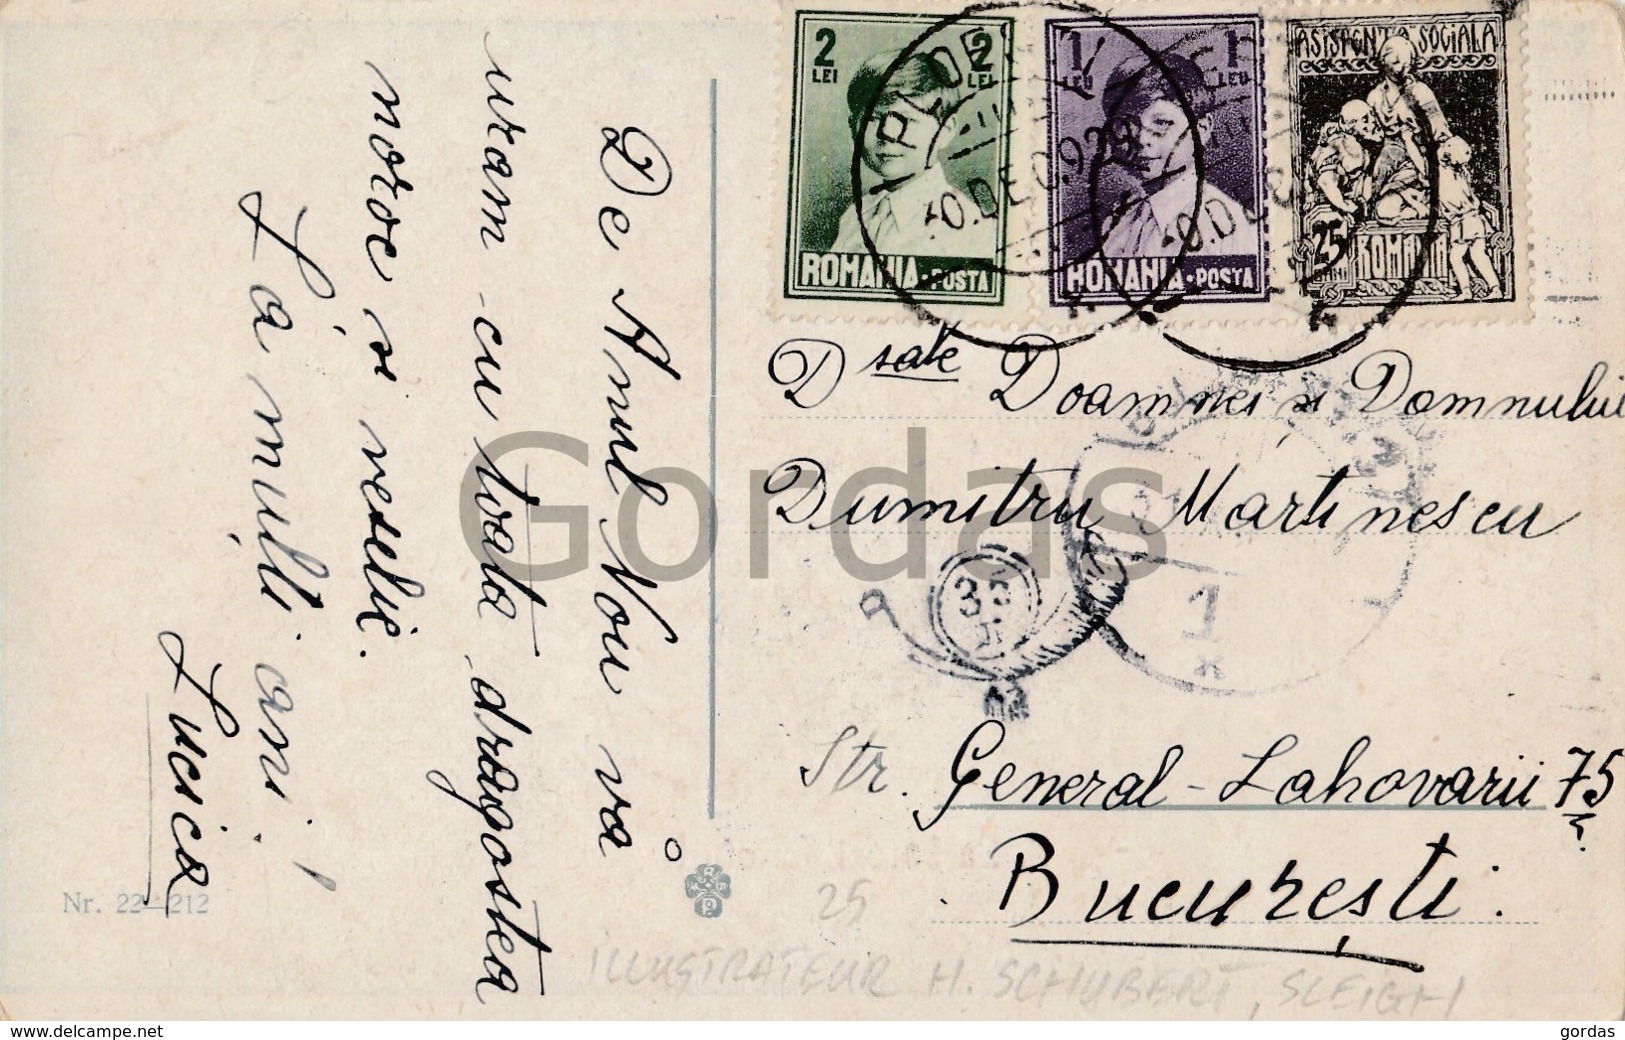 De Anul Nou vă
urăm - cu toată dragostea
noroc și veselie.
La mulți ani!
Lucica
Nr. 22—212
2 LEI 2 LEI
ROMANIA · POSTA
1 LEU 1 LEU
ROMANIA · POSTA
ASISTENTA SOCIALA
25 BANI
ROMANIA
PLOE
10. DEC. 929
10. DEC
Dsale Doamnei și Domnului
Dumitru Martinescu
33
1
Str. General - Lahovarii 75
București.
25
ILLUSTRATEUR H. SCHUBERT, SLEIGH
Gordas
www.delcampe.net
gordas